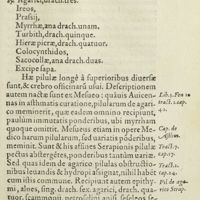 Agarici, drach.tres.
Ireos
Prasij,
Myrrhæ, ana drach.unam.
Turbith, drach.quinque.
Hieræ picræ, drach.quatuor.
Colocynthidos,
Sacocollæ, ana drach.duas.
Excipe sapa.
Hæ pilulæ longè à superioribus diuersæ
sunt, & crebro officinarū usui. Descriptionem
autem nactæ sunt ex Mesueo: quāuis Auicen-
nas in asthmatis curatione, pilularum de agari-
co meminerit, quæ eadem omnino recipiunt,
paululum immutatis ponderibus, ubi erprædi-
co. Quanquam & Mesueus etiam in opere Me-
dico harum pilularum, sed uariatis ponderib.
meminit. Sunt & his affines Serapionis pilulæ
pectus abstergētes, ponderibus tantūm uariatę.
Sed, quas idem de agarico pilulas obstructio-
nibus leuandis & hydropi assignat, nihil habēt
cum istis commune. Recipiunt autem epithy-
mi, aloes, sing. drach. sex. agarici, drach. quatuor,
Lib.3. Fen 10
tract.1.cap.
42.
Cap. de
Asthm.
Tract.7.
cap.17.
Tract.7.
cap.24.
Pil de aga-
rico Serap.